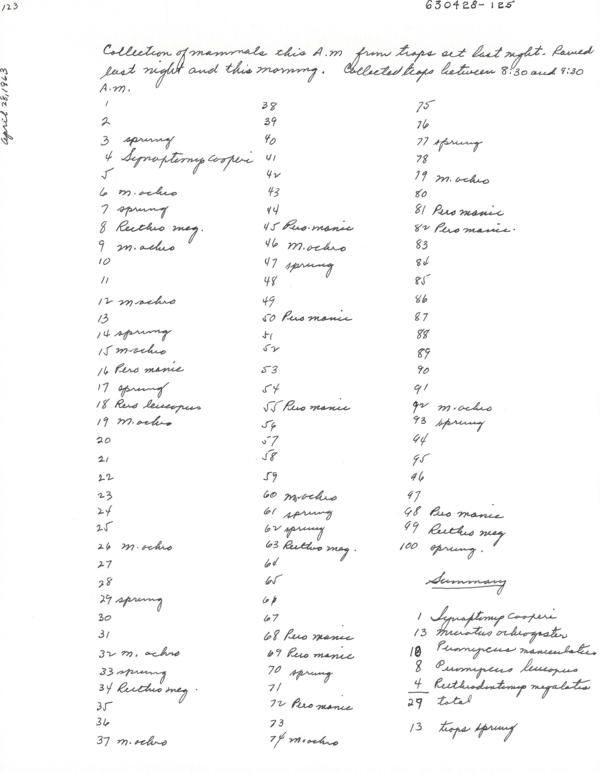 123
630428-125
April 28, 1963
Collection of mammals this A.M from traps set last night. Rained
last night and this morning. Collected traps between 8:30 and 9:30
A.M.
1
2
3 sprung
4 Synaptomys cooperi
5
6 M. ochro
7 sprung
8 Reithro meg.
9 M. ochro
10
11
12 M. ochro
13
14 sprung
15 M. ochro
16 Pero manic
17 sprung
18 Pero leucopus
19 M. ochro
20
21
22
23
24
25
26 M. ochro
27
28
29 sprung
30
31
32 M. ochro
33 sprung
34 Reithro meg.
35
36
37 M. ochro
38
39
40
41
42
43
44
45 Pero. manic
46 M. ochro
47 sprung
48
49
50 Pero manic
51
52
53
54
55 Pero manic
56
57
58
59
60 M. ochro
61 sprung
62 sprung
63 Reithro meg.
64
65
66
67
68 Pero manic
69 Pero manic
70 sprung
71
72 Pero manic
73
74 M. ochro
75
76
77 sprung
78
79 M. ochro
80
81 Pero manic
82 Pero manic.
83
84
85
86
87
88
89
90
91
92 M. ochro
93 sprung
94
95
96
97
98 Pero manic
99 Reithro meg
100 sprung.
Summary
1 Synaptomys cooperi
13 Microtus ochrogaster
10 Peromyscus maniculatus
8 Peromyscus leucopus
4 Reithrodontomys megalotis
29 total
13 traps sprung